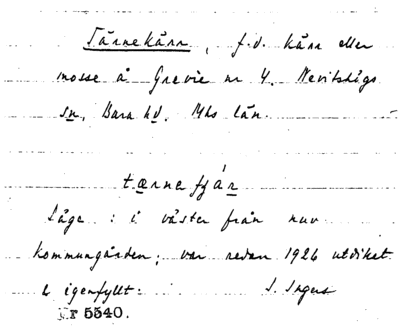 Tärnekärr, f.d. kärr eller
mosse å Grevie nr 4. Nevitshögs
sn, Bara hd, Mhs län.
tærnefjár
Läge: i väster från nuv
kommungården; var redan 1926 utdiket
& igenfyllt: I. Ingers
Nr 5540.